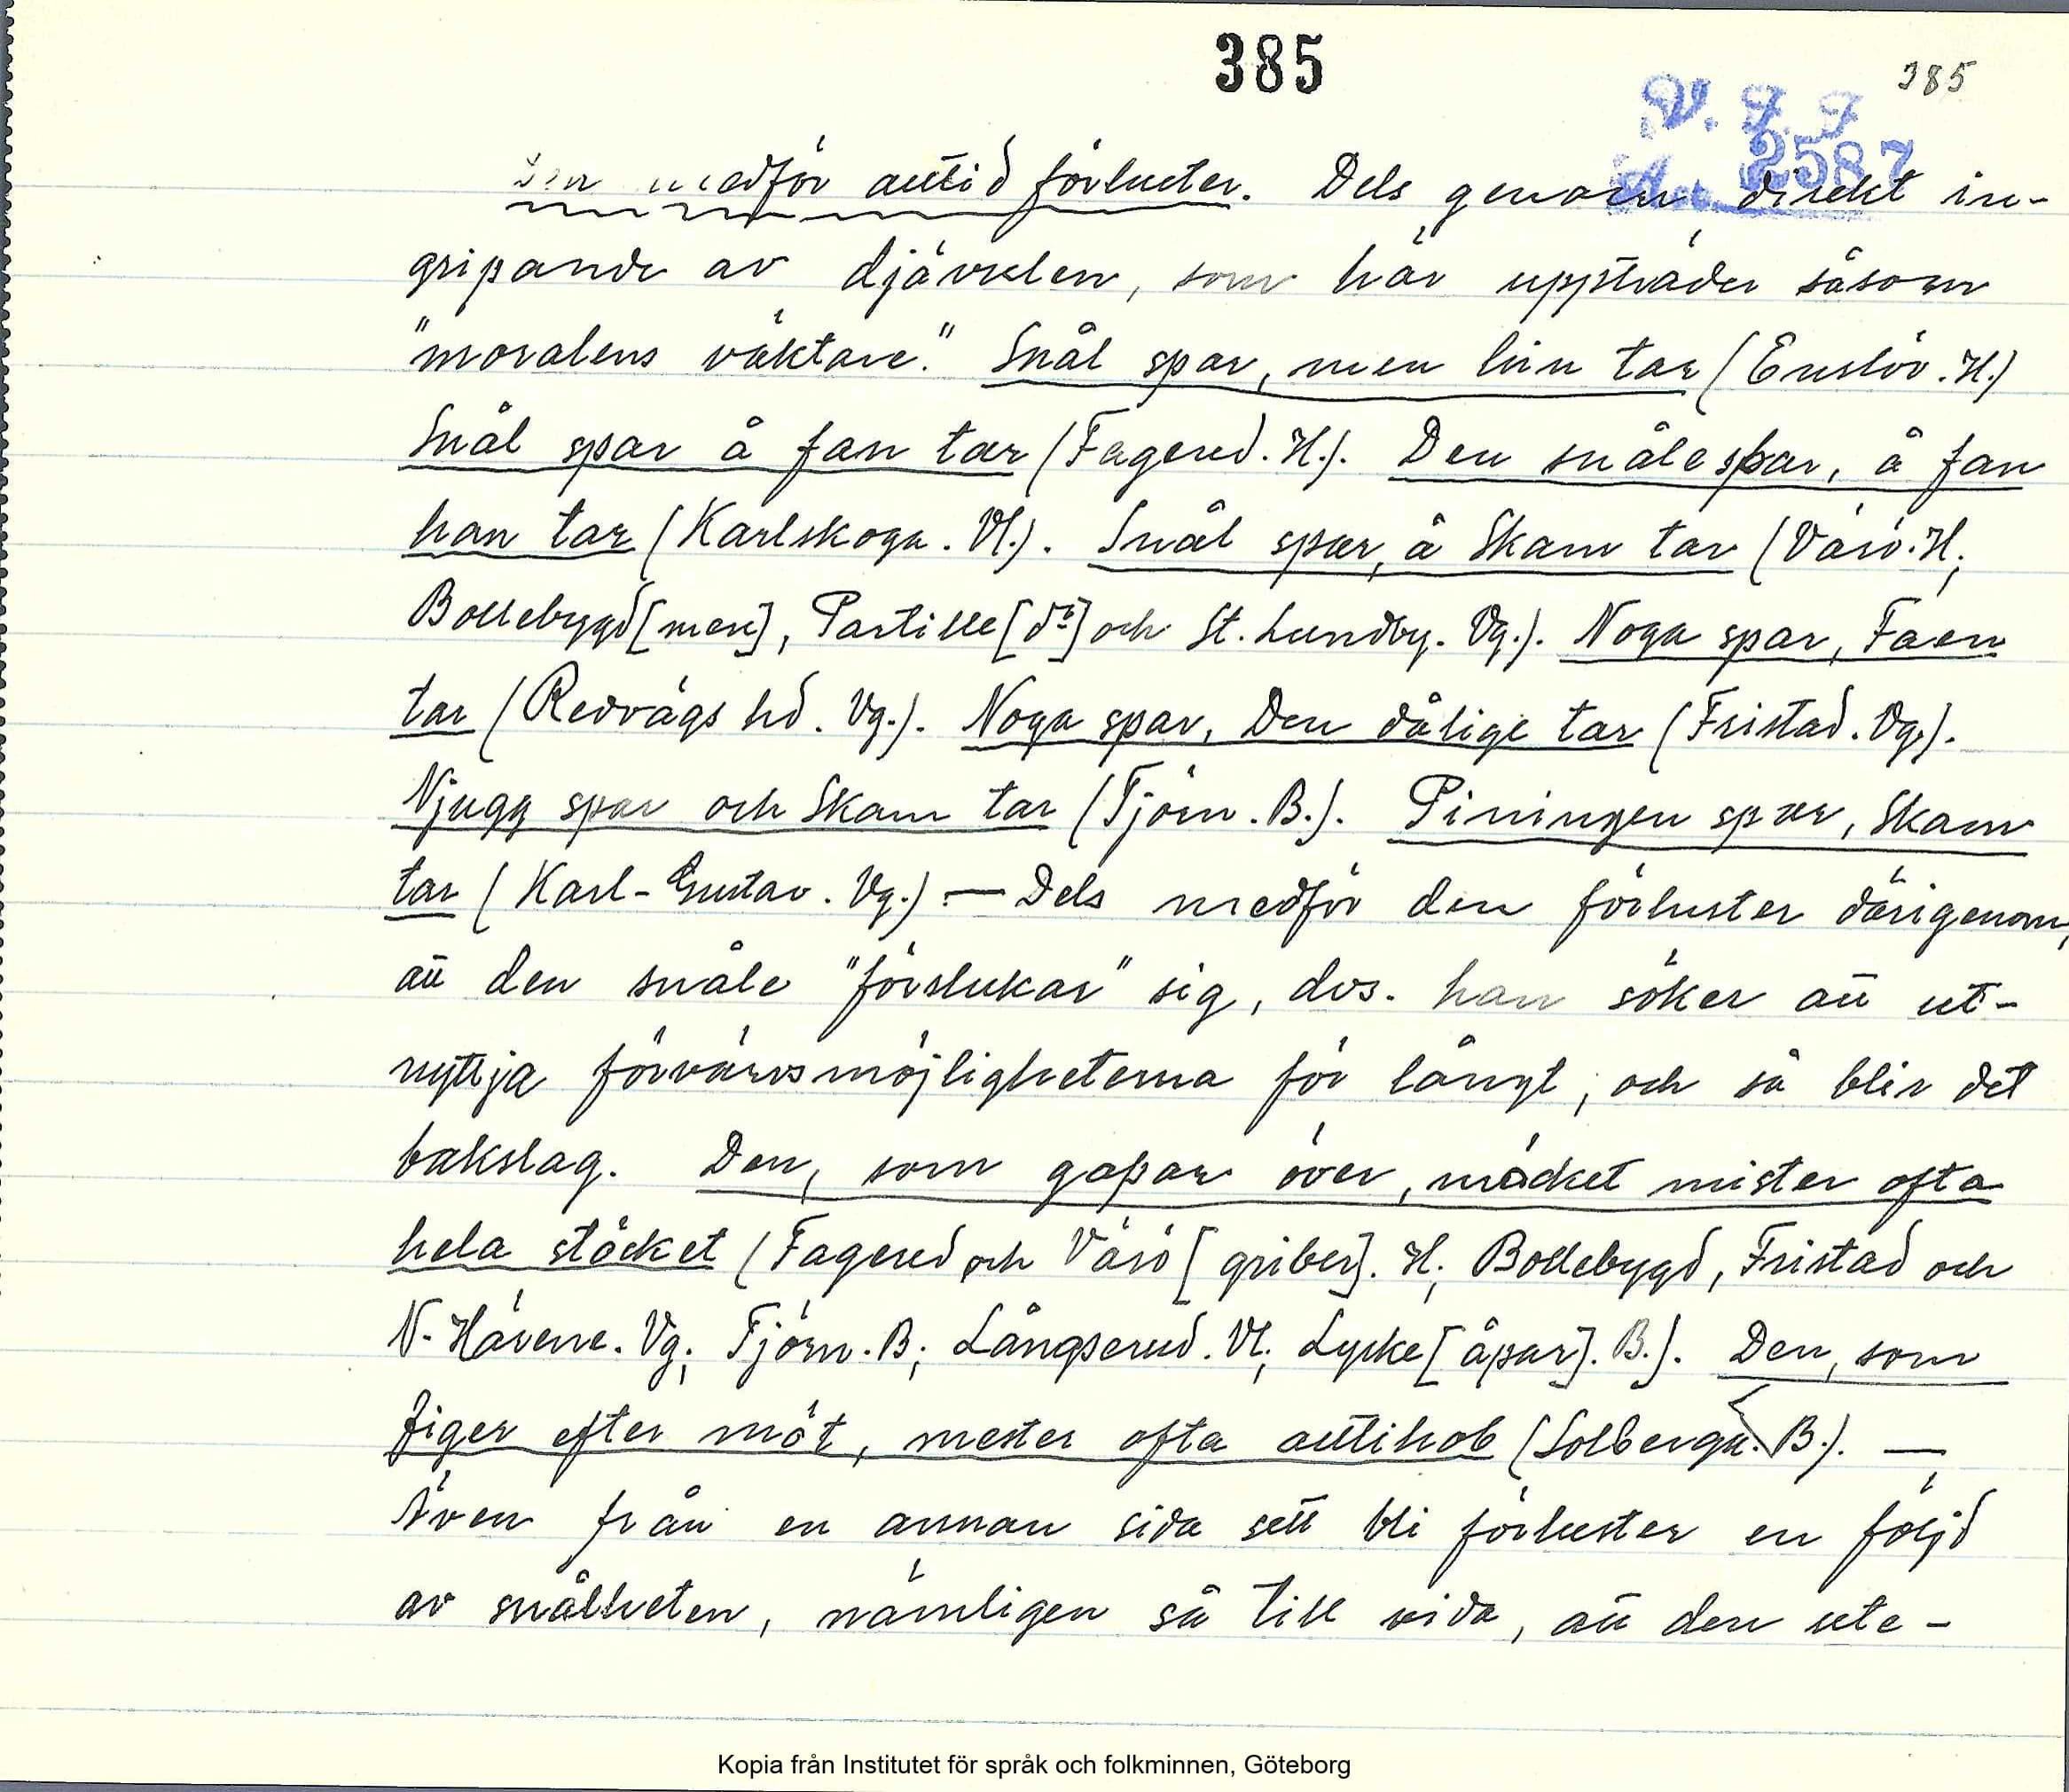 385
385
V. F. F
2587
Den medför alltid förluster. Dels genom direkt in-
gripande av djävulen, som här uppträder såsom
"moralens väktare". Snål spar, men hin tar (Enslöv. H.)
Snål spar å fan tar (Fagered. H.). Den snåle spar, å fan
han tar (Karlskoga. Vl.). Snål spar, å Skam tar (Värö. H;
Bollebygd [men], Partille [d:o] och St. Lundby. Vg.). Noga spar, Faen
tar (Redvägs hd. Vg.). Noga spar, Den dålige tar (Fristad. Vg.).
Njugg spar och Skam tar (Tjörn. B.). Piningen spar, Skam
tar (Karl-Gustav. Vg.) — Dels medför den förluster därigenom,
att den snåle "förslukar" sig, dvs. han söker att ut-
nyttja förvärvsmöjligheterna för långt, och så blir det
bakslag. Den, som gapar över, mäcket mister ofta
hela stöcket (Fagered och Värö [griber]. H; Bollebygd, Fristad och
N. Härene. Vg; Tjörn. B; Långserud. Vl; Lycke [åpar]. B.). Den, som
figer efter möt, mester ofta alltihob (Solberga. B.). —
Även från en annan sida sett bli förluster en följd
av snålheten, nämligen så till vida, att den ute-
Kopia från Institutet för språk och folkminnen, Göteborg